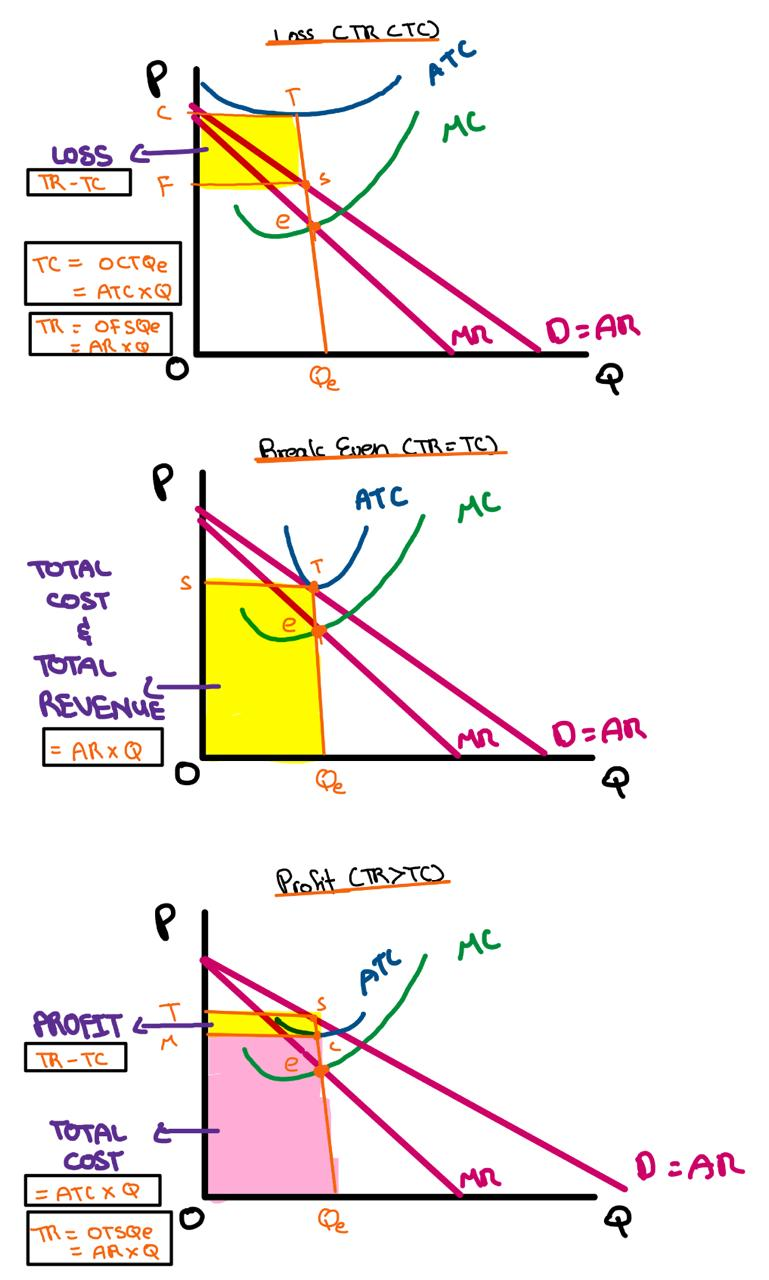 Loss (TR<TC)
P
ATC
C
T
MC
LOSS
TR-TC
F
S
e
TC = OCTQe
= ATC×Q
TR = OFSQe
= AR×Q
MR
D=AR
O
Qe
Q
Break Even (TR=TC)
P
ATC
MC
TOTAL
COST
&
TOTAL
REVENUE
= AR×Q
S
T
e
MR
D=AR
O
Qe
Q
Profit (TR>TC)
P
ATC
MC
T
S
PROFIT
M
C
TR-TC
e
TOTAL
COST
= ATC×Q
TR = OTSQe
= AR×Q
MR
D=AR
O
Qe
Q